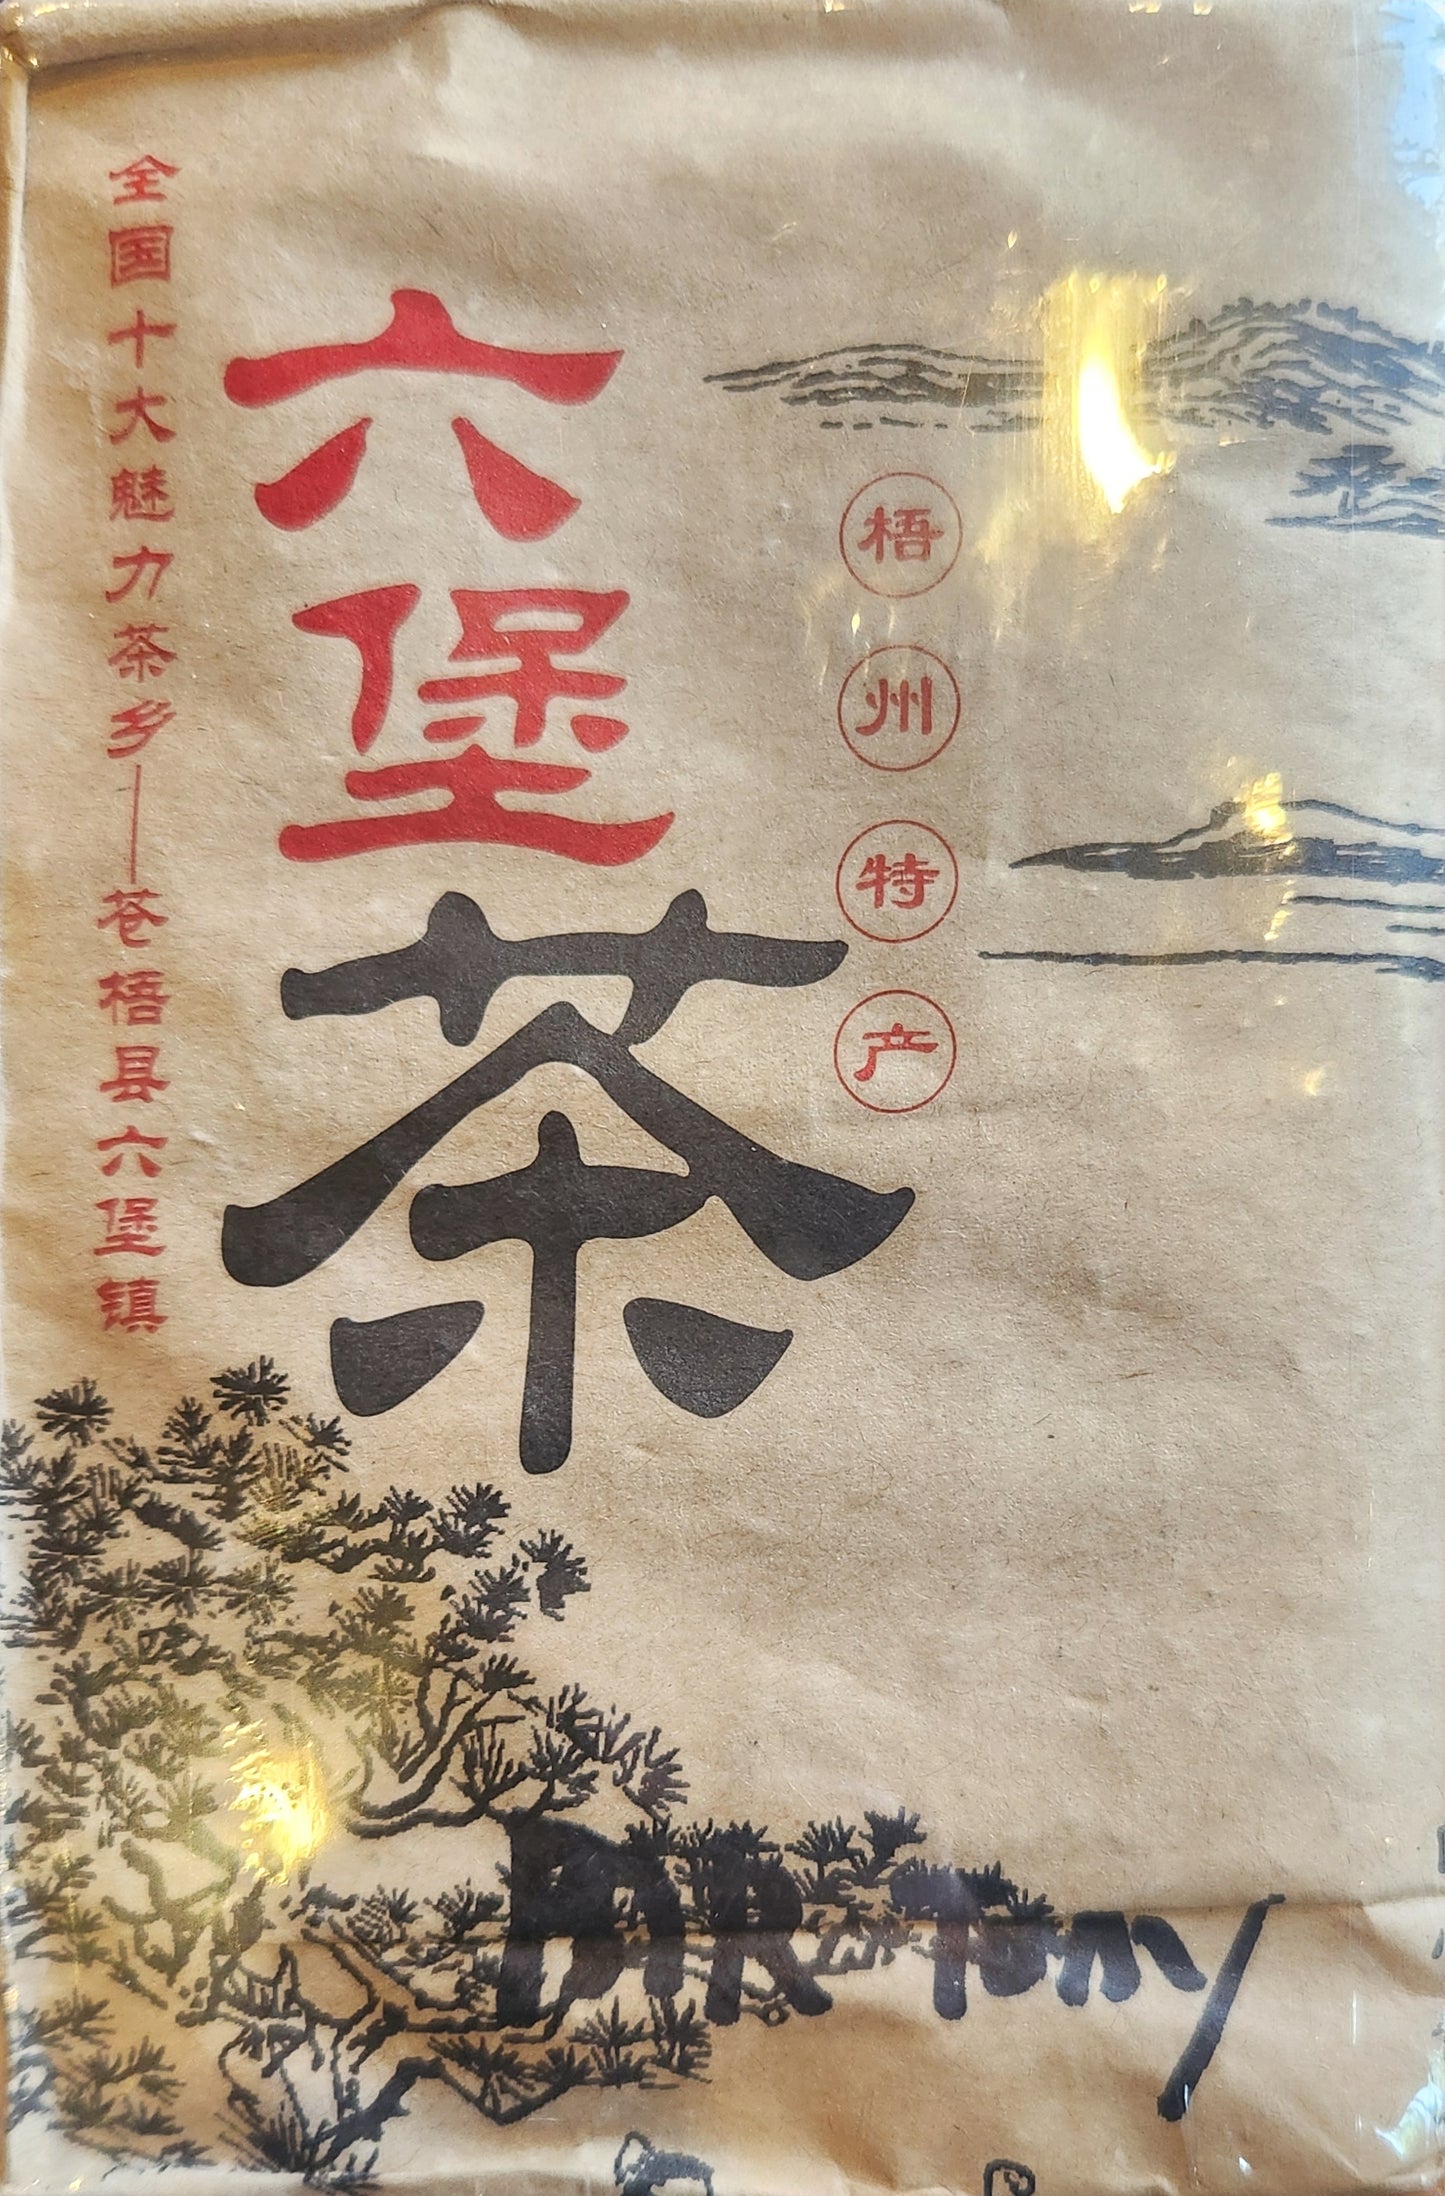 梧州特产
六堡茶
全国十大魅力茶乡——苍梧县六堡镇
DIR Tony